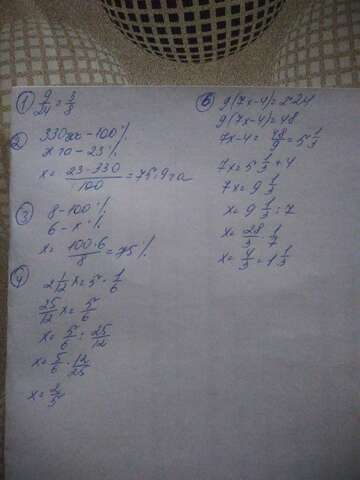 1) 9/24 = 3/8
2) 330га - 100%
х га - 23%
x = 23·330/100 = 75,9 га
3) 8 - 100%
6 - х%
x = 100·6/8 = 75%
4) 2 1/12 x = 5 · 1/6
25/12 x = 5/6
x = 5/6 : 25/12
x = 5/6 · 12/25
x = 2/5
6) 9(7x-4) = 2·24
9(7x-4) = 48
7x-4 = 48/9 = 5 1/3
7x = 5 1/3 + 4
7x = 9 1/3
x = 9 1/3 : 7
x = 28/3 · 1/7
x = 4/3 = 1 1/3